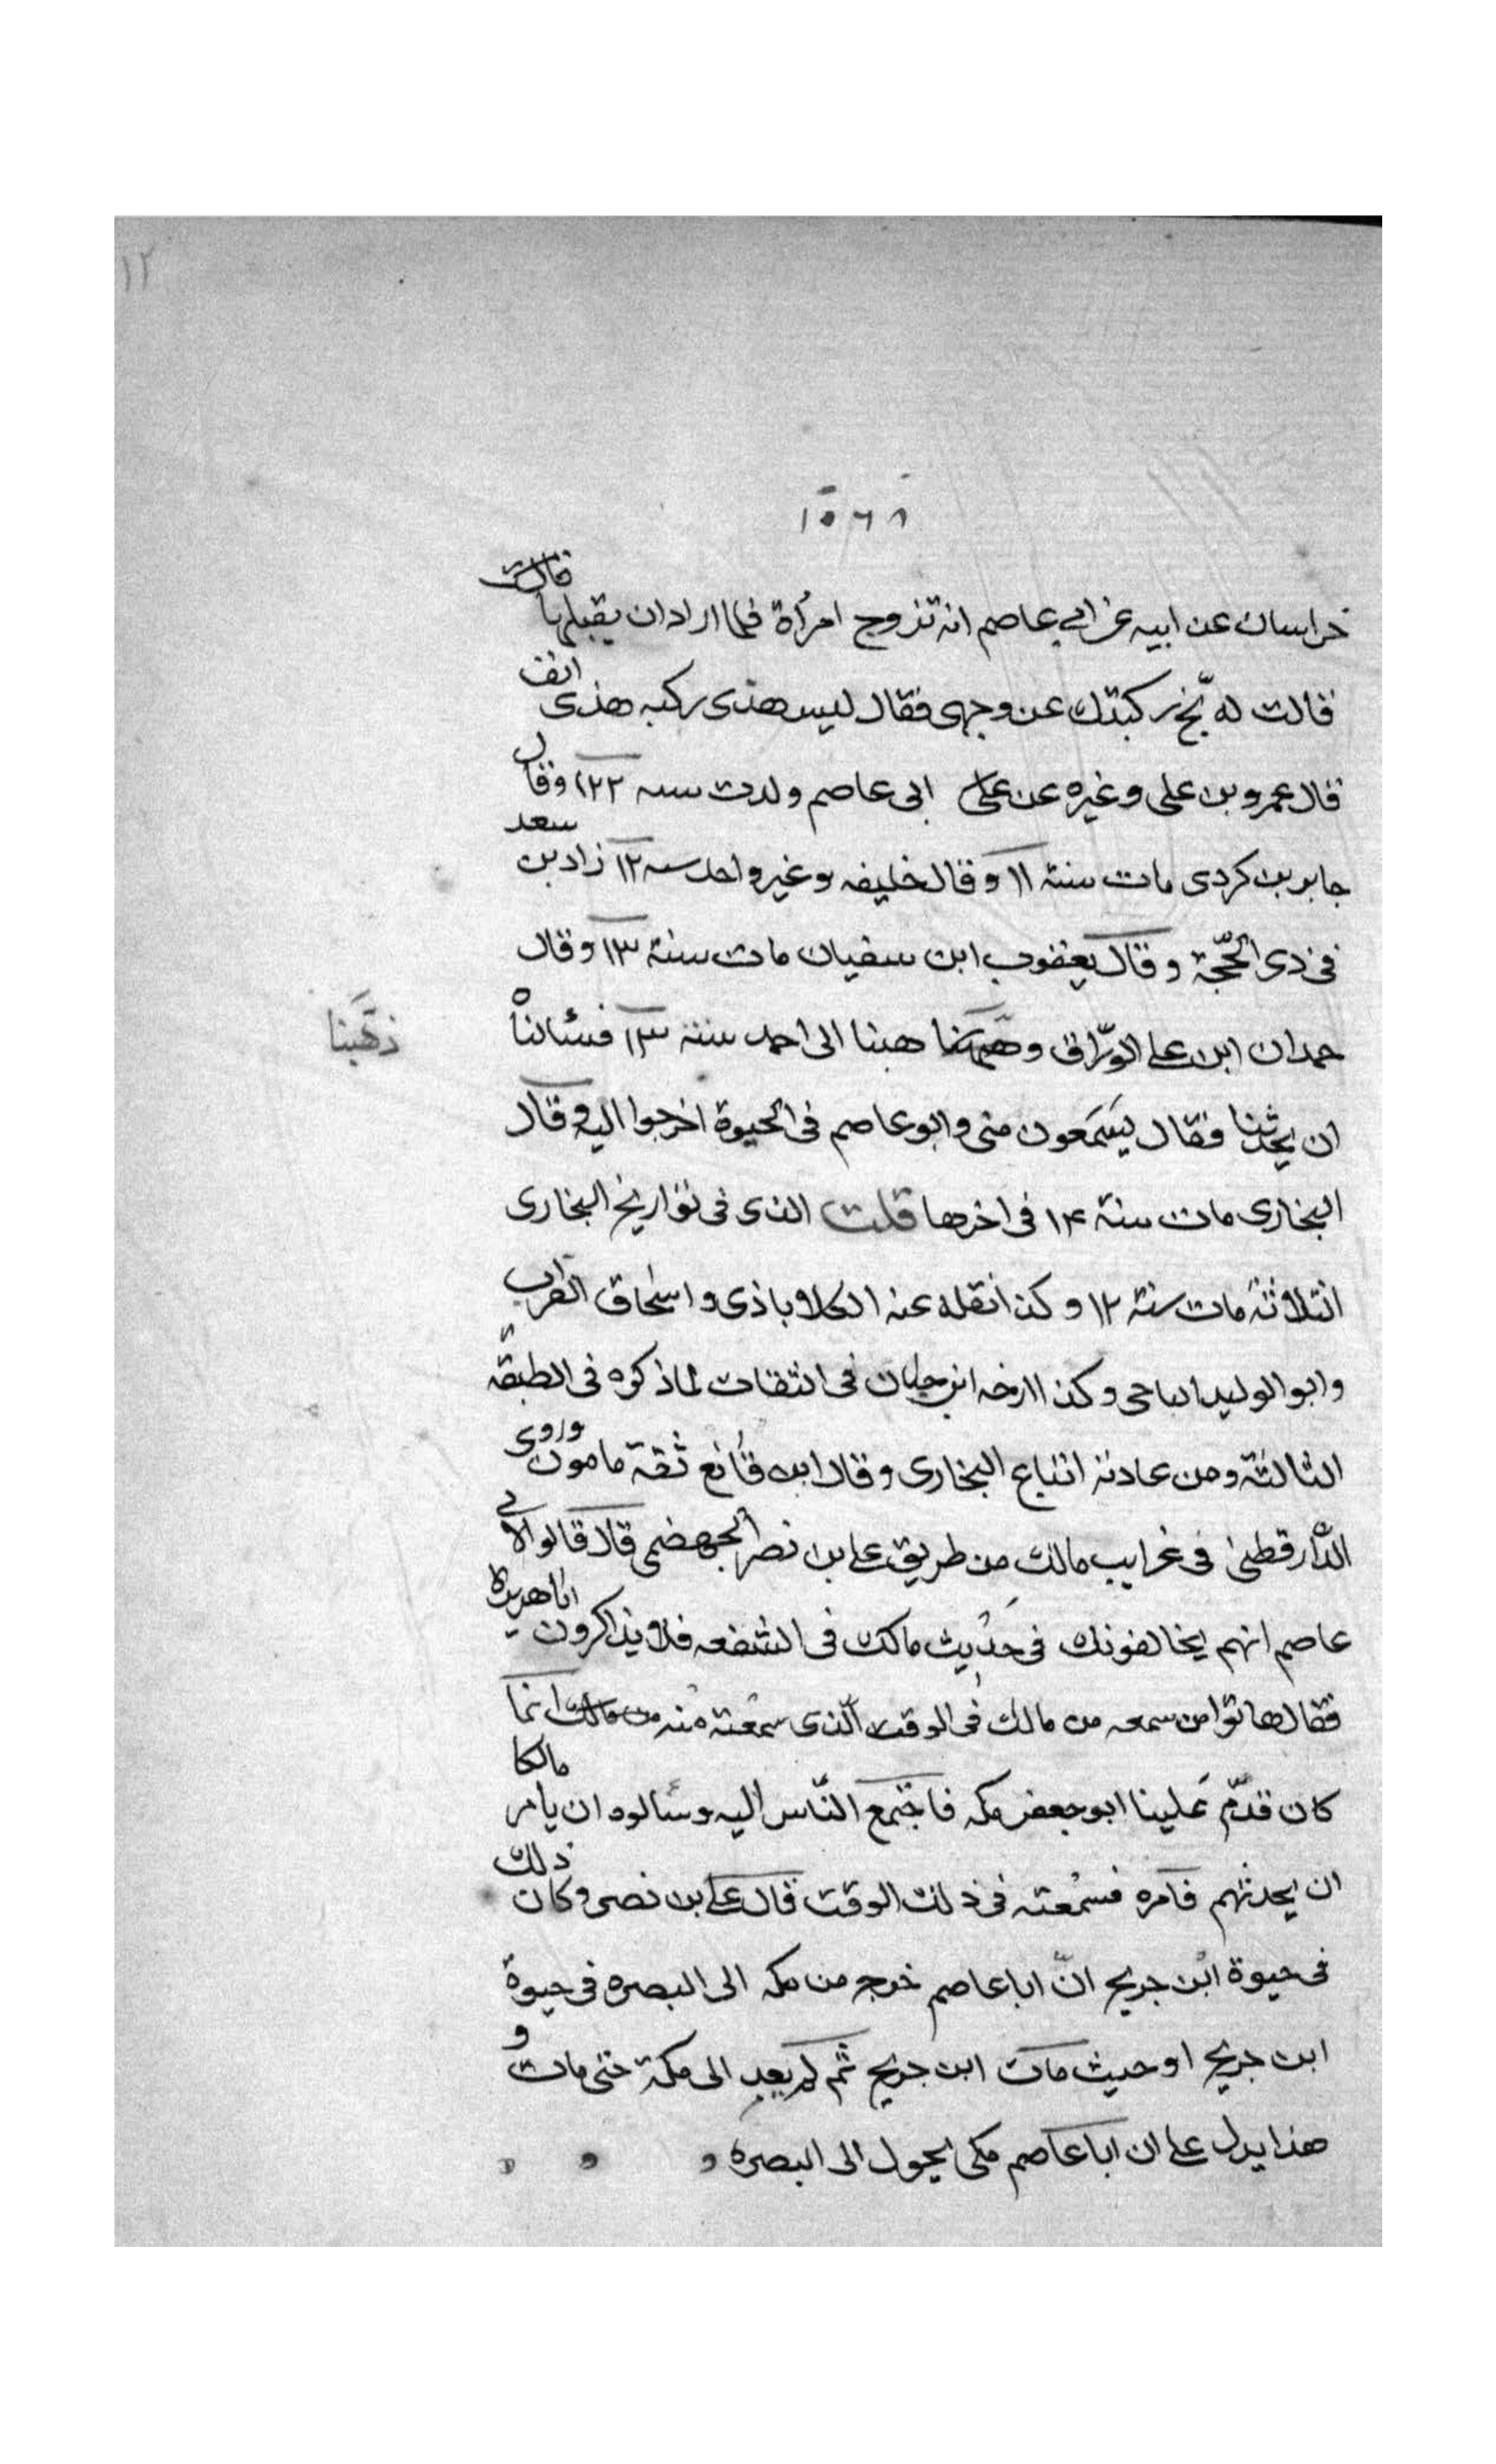 ١٢
١٥٦٨
خراسان عن ابيه عن ابي عاصم انه تزوج امرأة فلما اراد ان يقبلها قالت
قالت له نخ ركبتك عن وجهى فقال ليس هذى ركبه هذى انف
قال عمرو بن على وغيره عن على ابى عاصم ولدت سنه ١٢٢ وقال
جابر بن كردى مات سنة ١١ وقال خليفه وغير واحد سنه ١٢ زاد بن سعد
فى ذى الحّجّة وقال يعقوب ابن سفيان مات سنة ١٣ وقال
حمدان ابن على الورّاق هبنا الى احمد سنة ١٣ فسئالناه
ذهَبنا
ان يحدثنا فقال يَسَمَعون منى وابو عاصم فى الحيوة اخرجوا اليه وقال
البخارى مات سنة ١٤ فى اخرها قلت الذى فى تواريخ البخارى
الثلاثة مات سنة ١٢ وكذا نقله عنه الكلاباذى واسحاق القراب
وابو الوليد الباجى وكذا ارخه ابن حبان فى الثقات لما ذكره فى الطبقة
الثالثة ومن عادته اتباع البخارى وقال ابن قانع ثقة مامون وروى
الدّارقطنى فى غرايب مالك من طريق على بن نصر الجهضمى قال قالوا لابى
عاصم انهم يخالفونك فى حديث مالك فى الشفعه فلا يذاكرون اباهريرة
فقال هاتوا من سمعه من مالك فى الوقت الّذى سمعته منه من مالك انما
كان قدّم عَلينا ابو جعفر مكه فاجتمع النّاس اليه وسئالوه ان يامر مالكا
ان يحدثهم فامره فسمعته فى ذلك الوقت قال على بن نصر وكان ذلك
فى حيوة ابن جريج انّ ابا عاصم خرج من مكه الى البصره فى حيوة
ابن جريج او حيث مات ابن جريج ثم لم يعد الى مكة حتى مات و
هذا يدل على ان ابا عاصم مكى يحول الى البصره